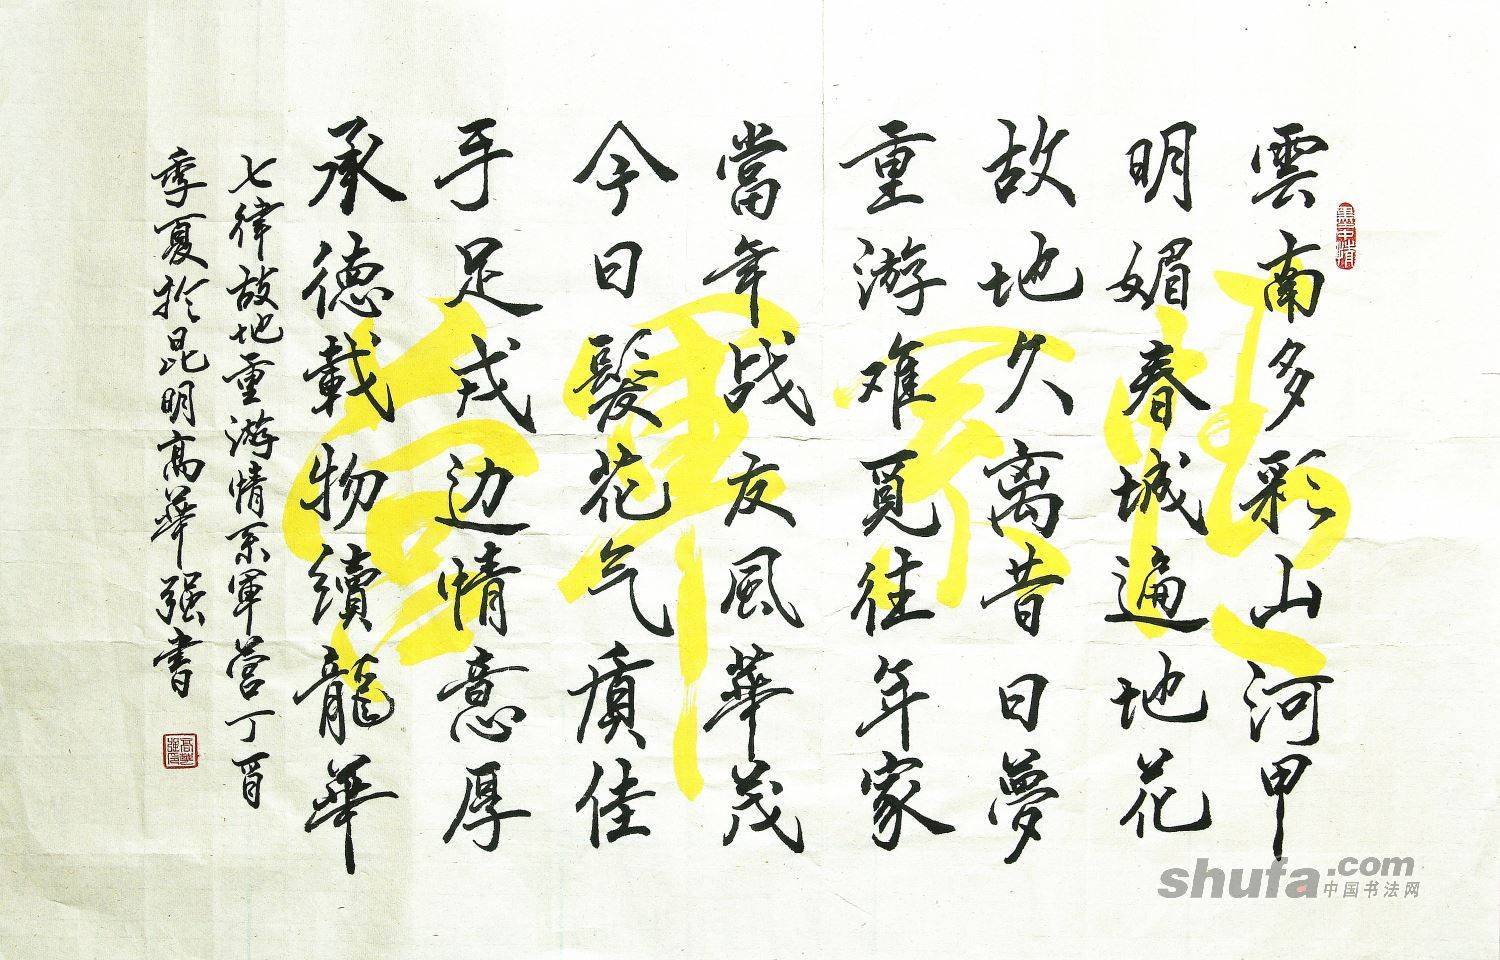 雲南多彩山河甲
明媚春城遍地花
故地久离昔日夢
重游难覓往年家
當年战友風華茂
今日髮花气质佳
手足戎边情意厚
承德載物續龍華
七律故地重游情系軍营丁酉
季夏於昆明高華强書
情系軍营
shufa.com
中国书法网